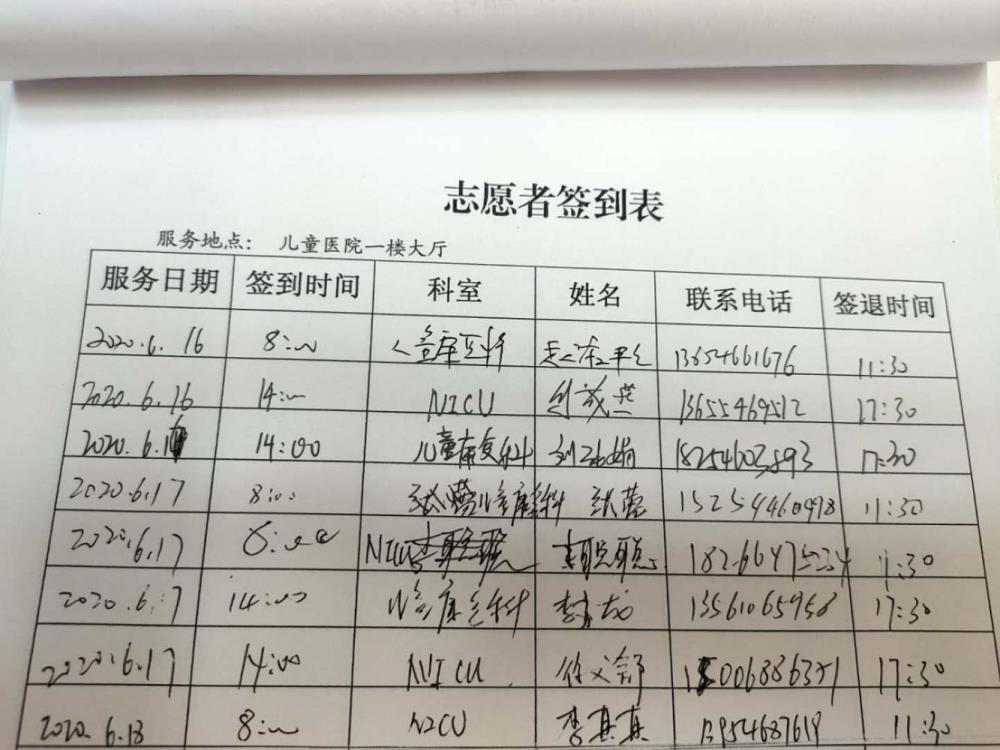 志愿者签到表
服务地点： 儿童医院一楼大厅
服务日期 签到时间 科室 姓名 联系电话 签退时间
2020.6.16 8:00 儿童康复科 13654661676 11:30
2020.6.16 14:00 NICU 13655469512 17:30
2020.6. 14:00 儿童康复科 刘 18254603893 17:30
2020.6.17 8:00 儿童康复科 张营 15254460998 11:30
2020.6.17 8:00 NICU 李聪聪 18266475234 11:30
2020.6.17 14:00 儿童康复科 李 13561065958 17:30
2020.6.17 14:00 NICU 徐文 17:30
2020.6.18 8:00 NICU 李真真 13954687619 11:30